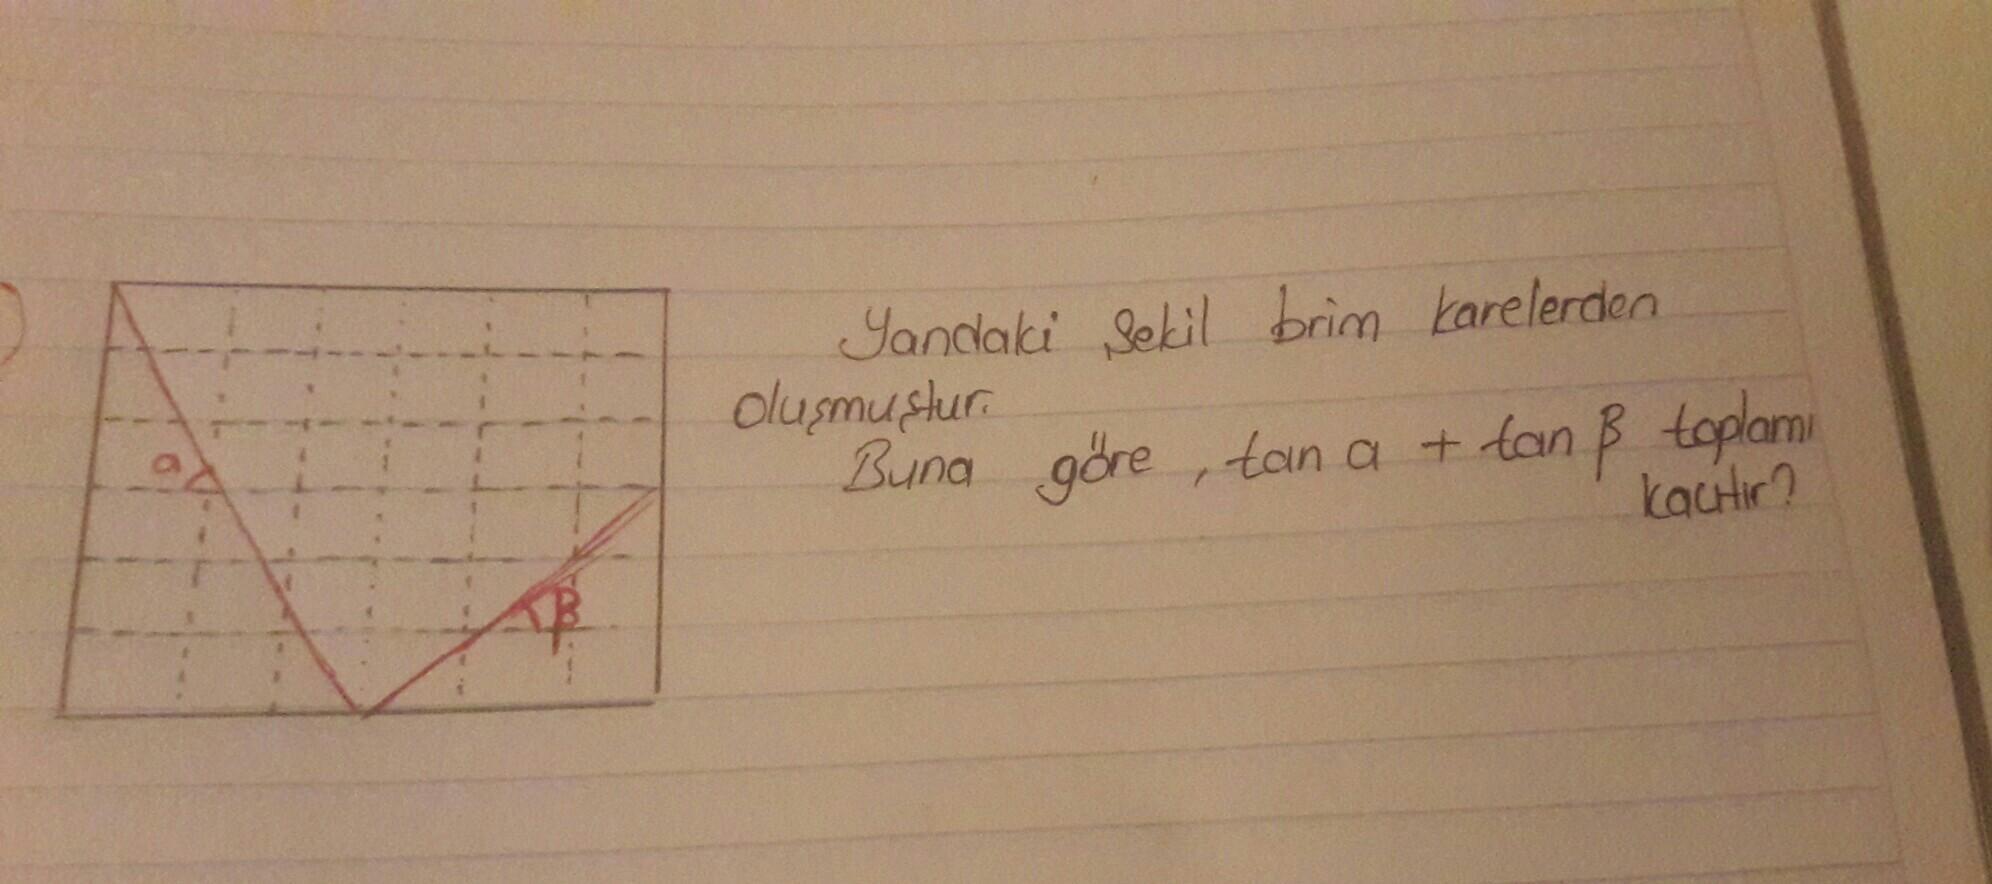 Yandaki şekil brim karelerden
oluşmuştur.
Buna göre, tan a + tan β toplamı
kaçtır?
a
β